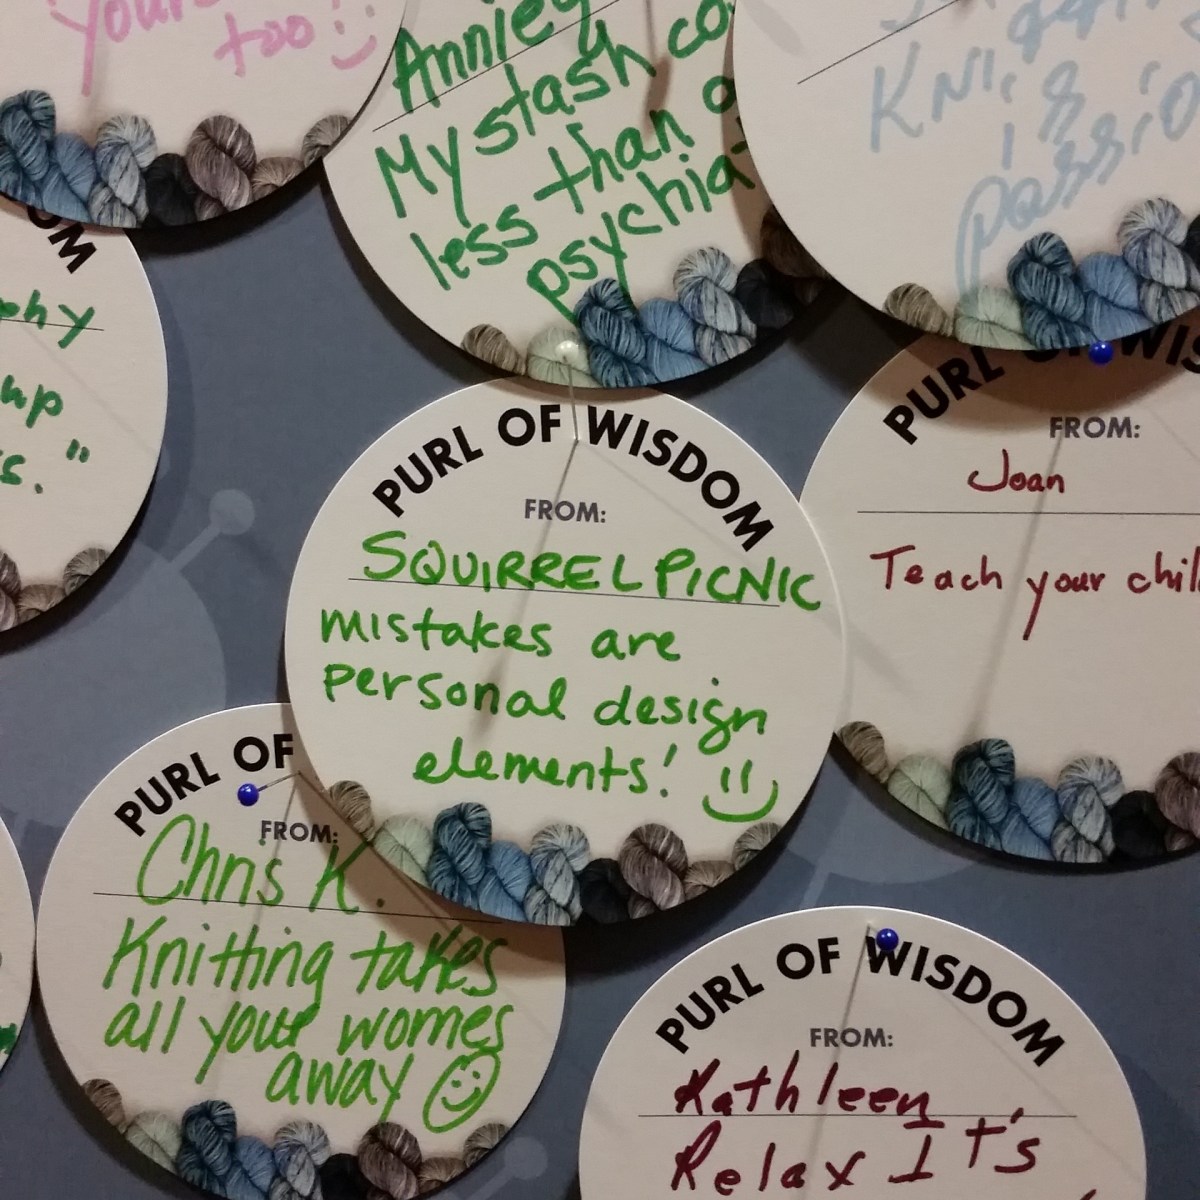 yours
too
Annie
My stash
less than a
Knit
is
OM
phy
up
s."
PURL OF WISDOM
FROM:
SQUIRRELPICNIC
mistakes are
personal design
elements!
PURL WIS
FROM:
Joan
Teach your chil
PURL OF
FROM:
Chris K.
Knitting takes
all your worries
away
PURL OF WISDOM
FROM:
Kathleen
Relax It's